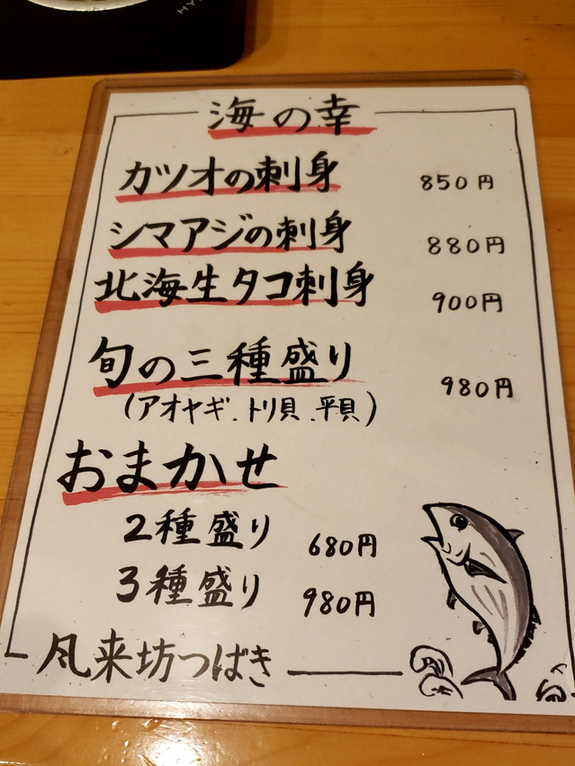 海の幸
カツオの刺身 850円
シマアジの刺身 880円
北海生タコ刺身 900円
旬の三種盛り 980円
(アオヤギ、トリ貝、平貝)
おまかせ
2種盛り 680円
3種盛り 980円
風来坊つばき